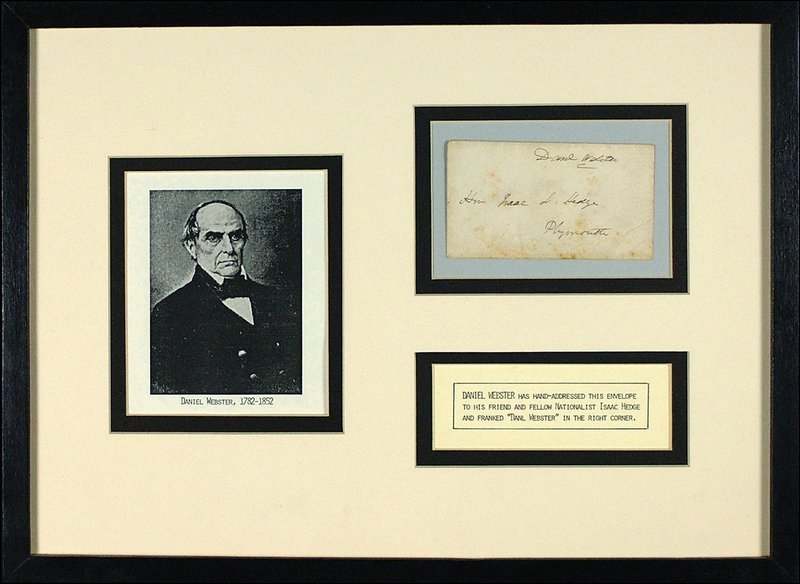 Danl Webster
Hon Isaac L. Hedge
Plymouth
DANIEL WEBSTER, 1782-1852
DANIEL WEBSTER HAS HAND-ADDRESSED THIS ENVELOPE
TO HIS FRIEND AND FELLOW NATIONALIST ISAAC HEDGE
AND FRANKED "DANL WEBSTER" IN THE RIGHT CORNER.